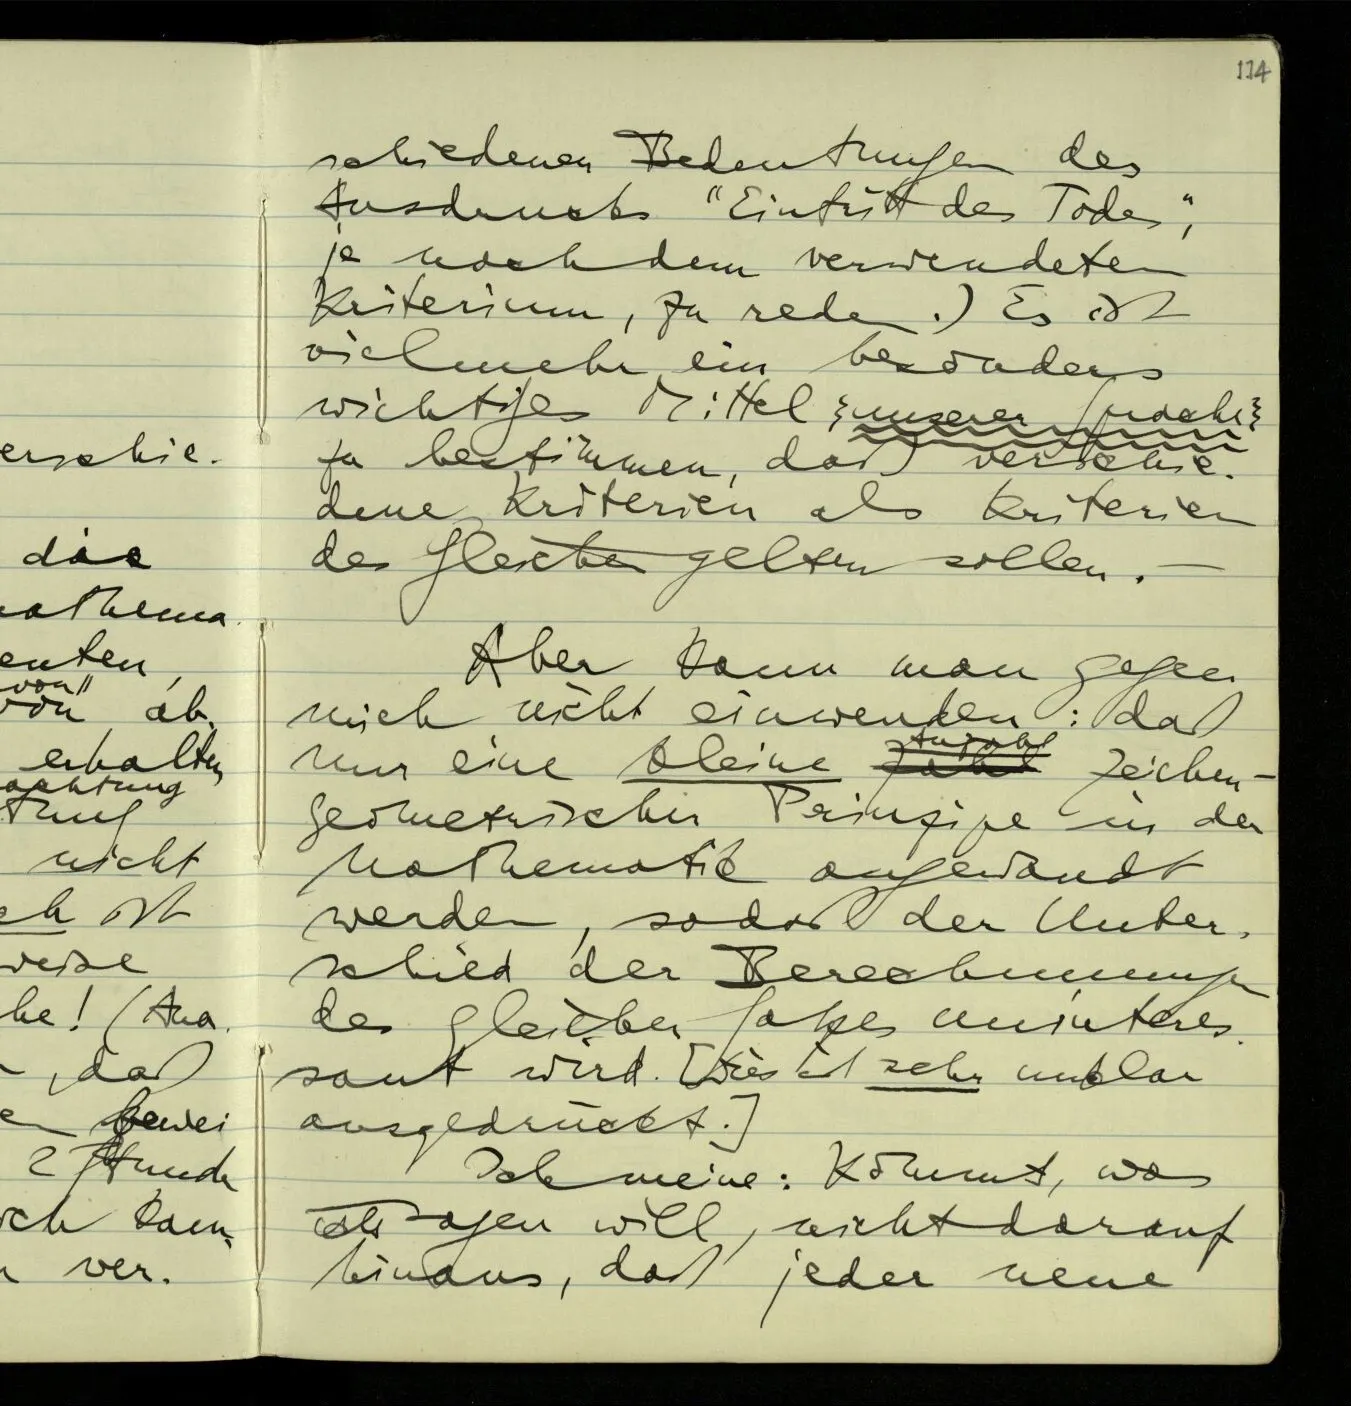 114
schiedenen Bedeutungen des
Ausdrucks "Eintritt des Todes",
je nach dem verwendeten
Kriterium, zu reden.) Es ist
vielmehr ein besonders
wichtiges Mittel unserer Sprache
zu bestimmen, daß verschie-
dene Kriterien als Kriterien
des Gleichen gelten sollen. —
Aber kann man gegen
mich nicht einwenden: daß
Anzahl
nur eine kleine Zahl zeichen-
geometrischer Prinzipe in der
Mathematik angewandt
werden, sodaß der Unter-
schied der Berechnungen
des gleichen Satzes uninteres-
sant wird. [Dies ist sehr unklar
ausgedrückt.]
Ich meine: Kommt, was
ich sagen will, nicht darauf
hinaus, daß jeder neue
erschie-
die
mathema-
enten,
von"
von ab.
erhalten
achtung
tung
nicht
ch ist
weise
he! (Ana-
, daß
bewei
2 Stunde
ich kann
ver-